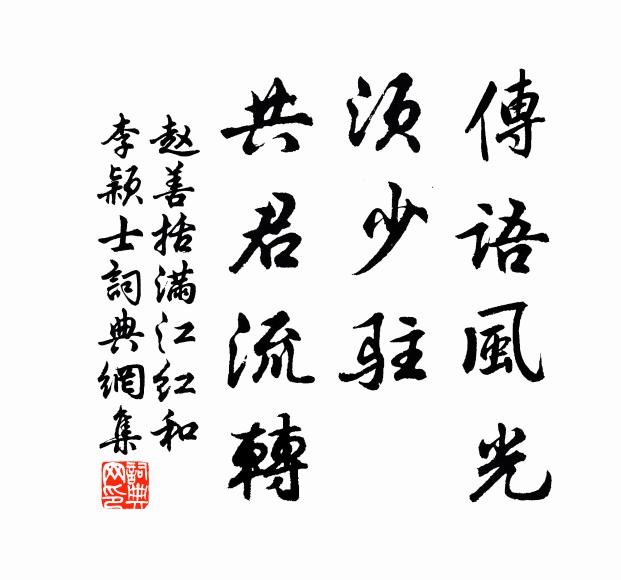 傳語風光
須少駐
共君流轉
赵善括满江红和
李颖士詞典網集
詞典网印